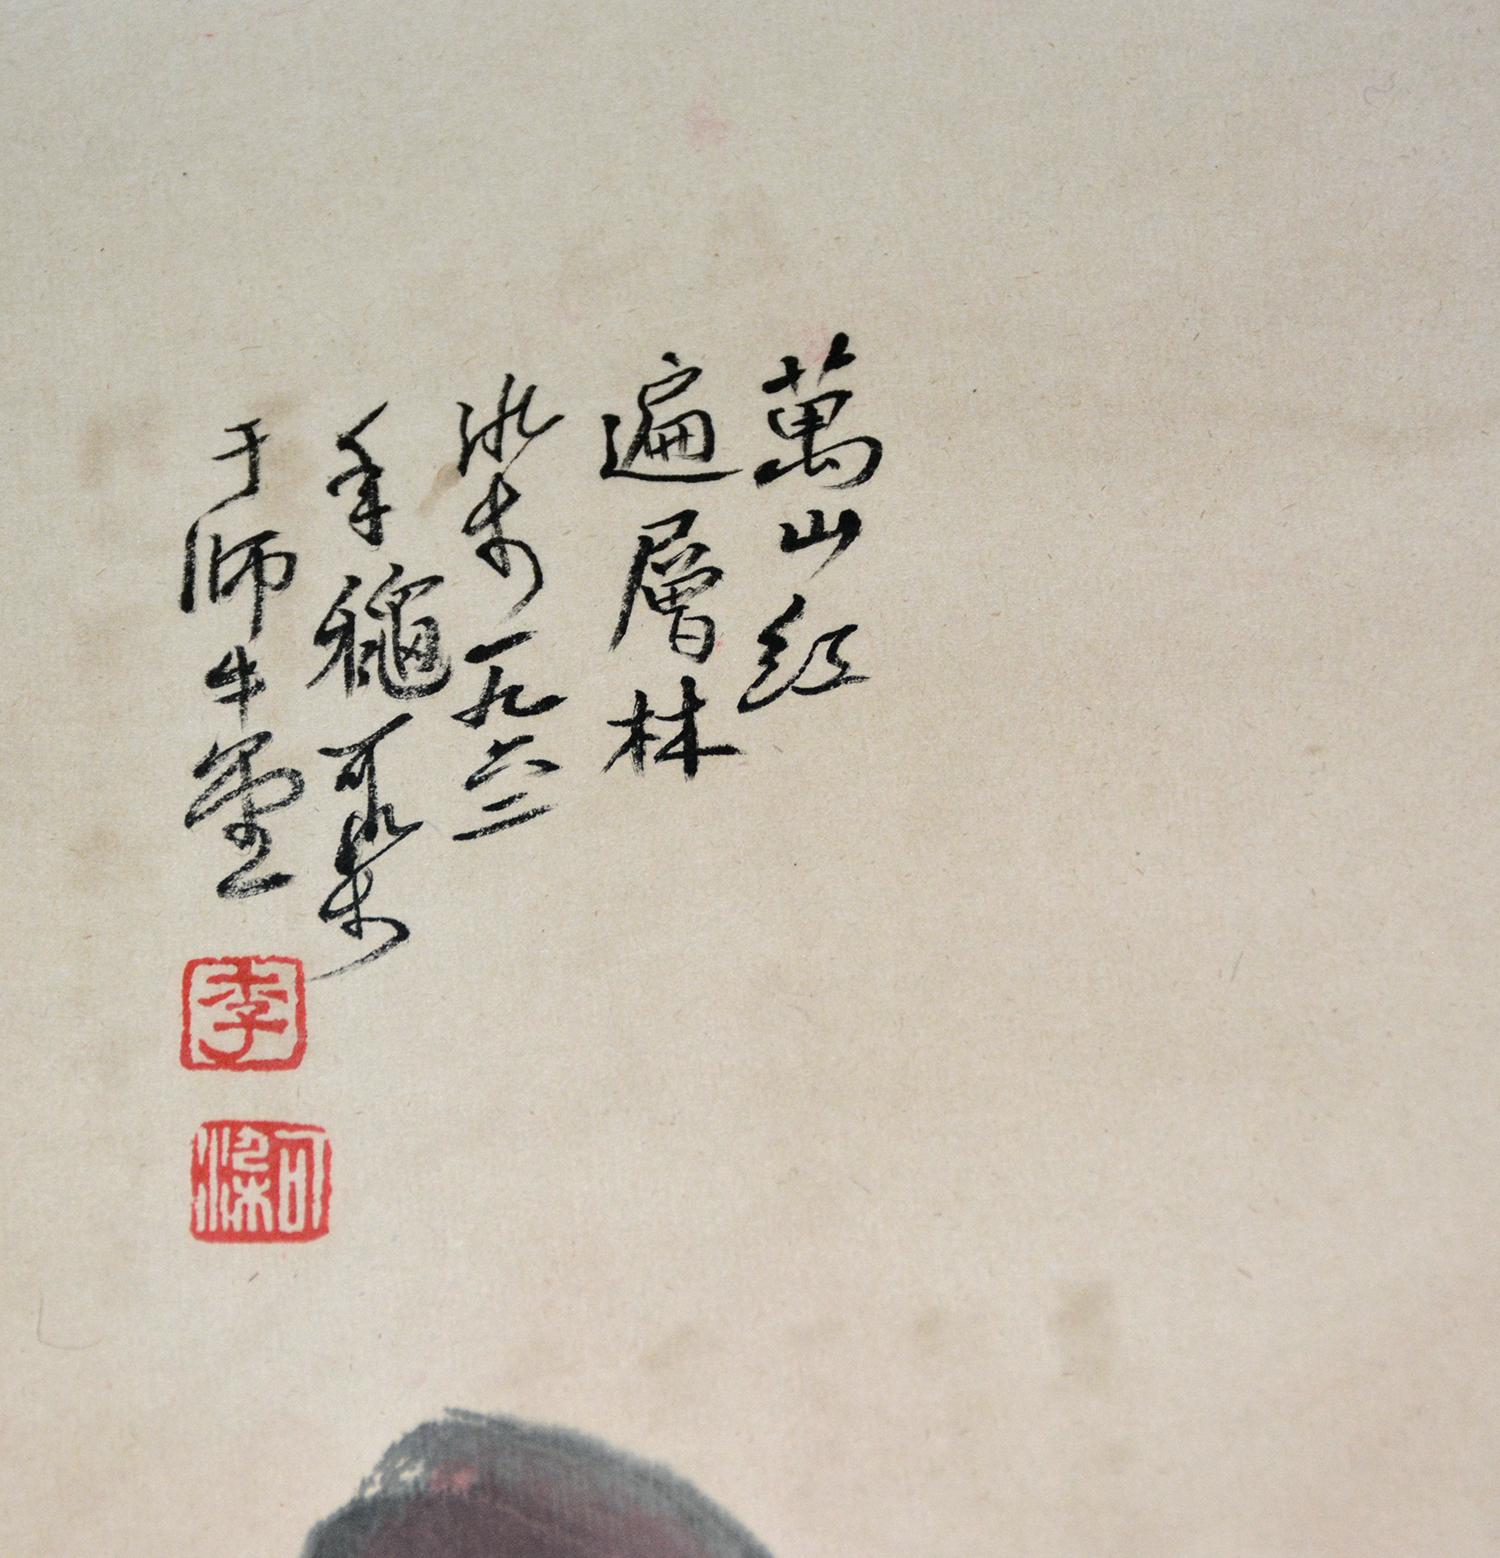 萬山紅
遍層林
染一九六二
年龝可染
于師牛堂
李
可染